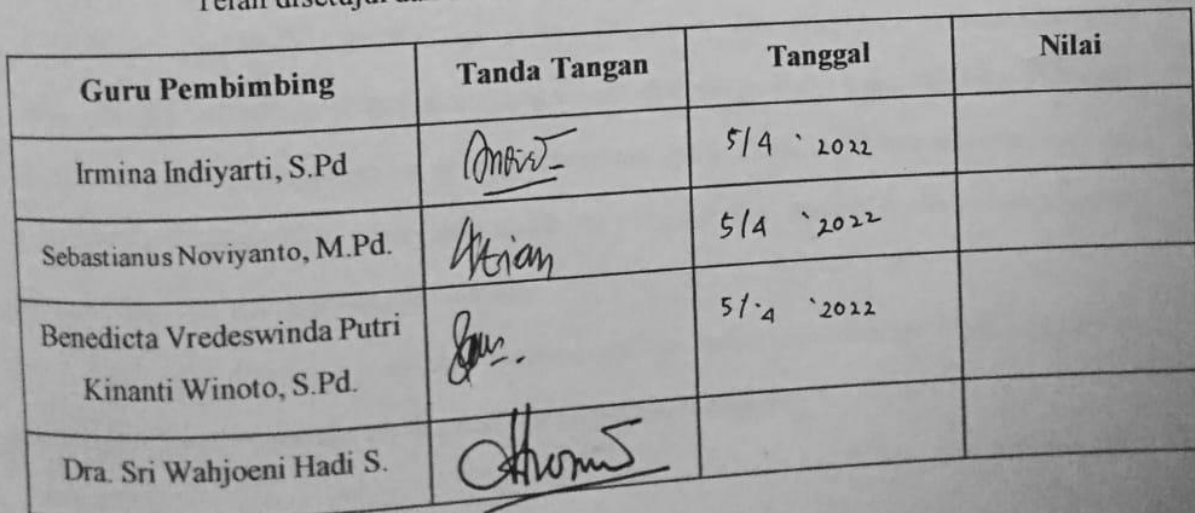 Telah disetujui
Guru Pembimbing Tanda Tangan Tanggal Nilai
Irmina Indiyarti, S.Pd 5/4 2022
Sebastianus Noviyanto, M.Pd. 5/4 2022
Benedicta Vredeswinda Putri 5/4 2022
Kinanti Winoto, S.Pd.
Dra. Sri Wahjoeni Hadi S.